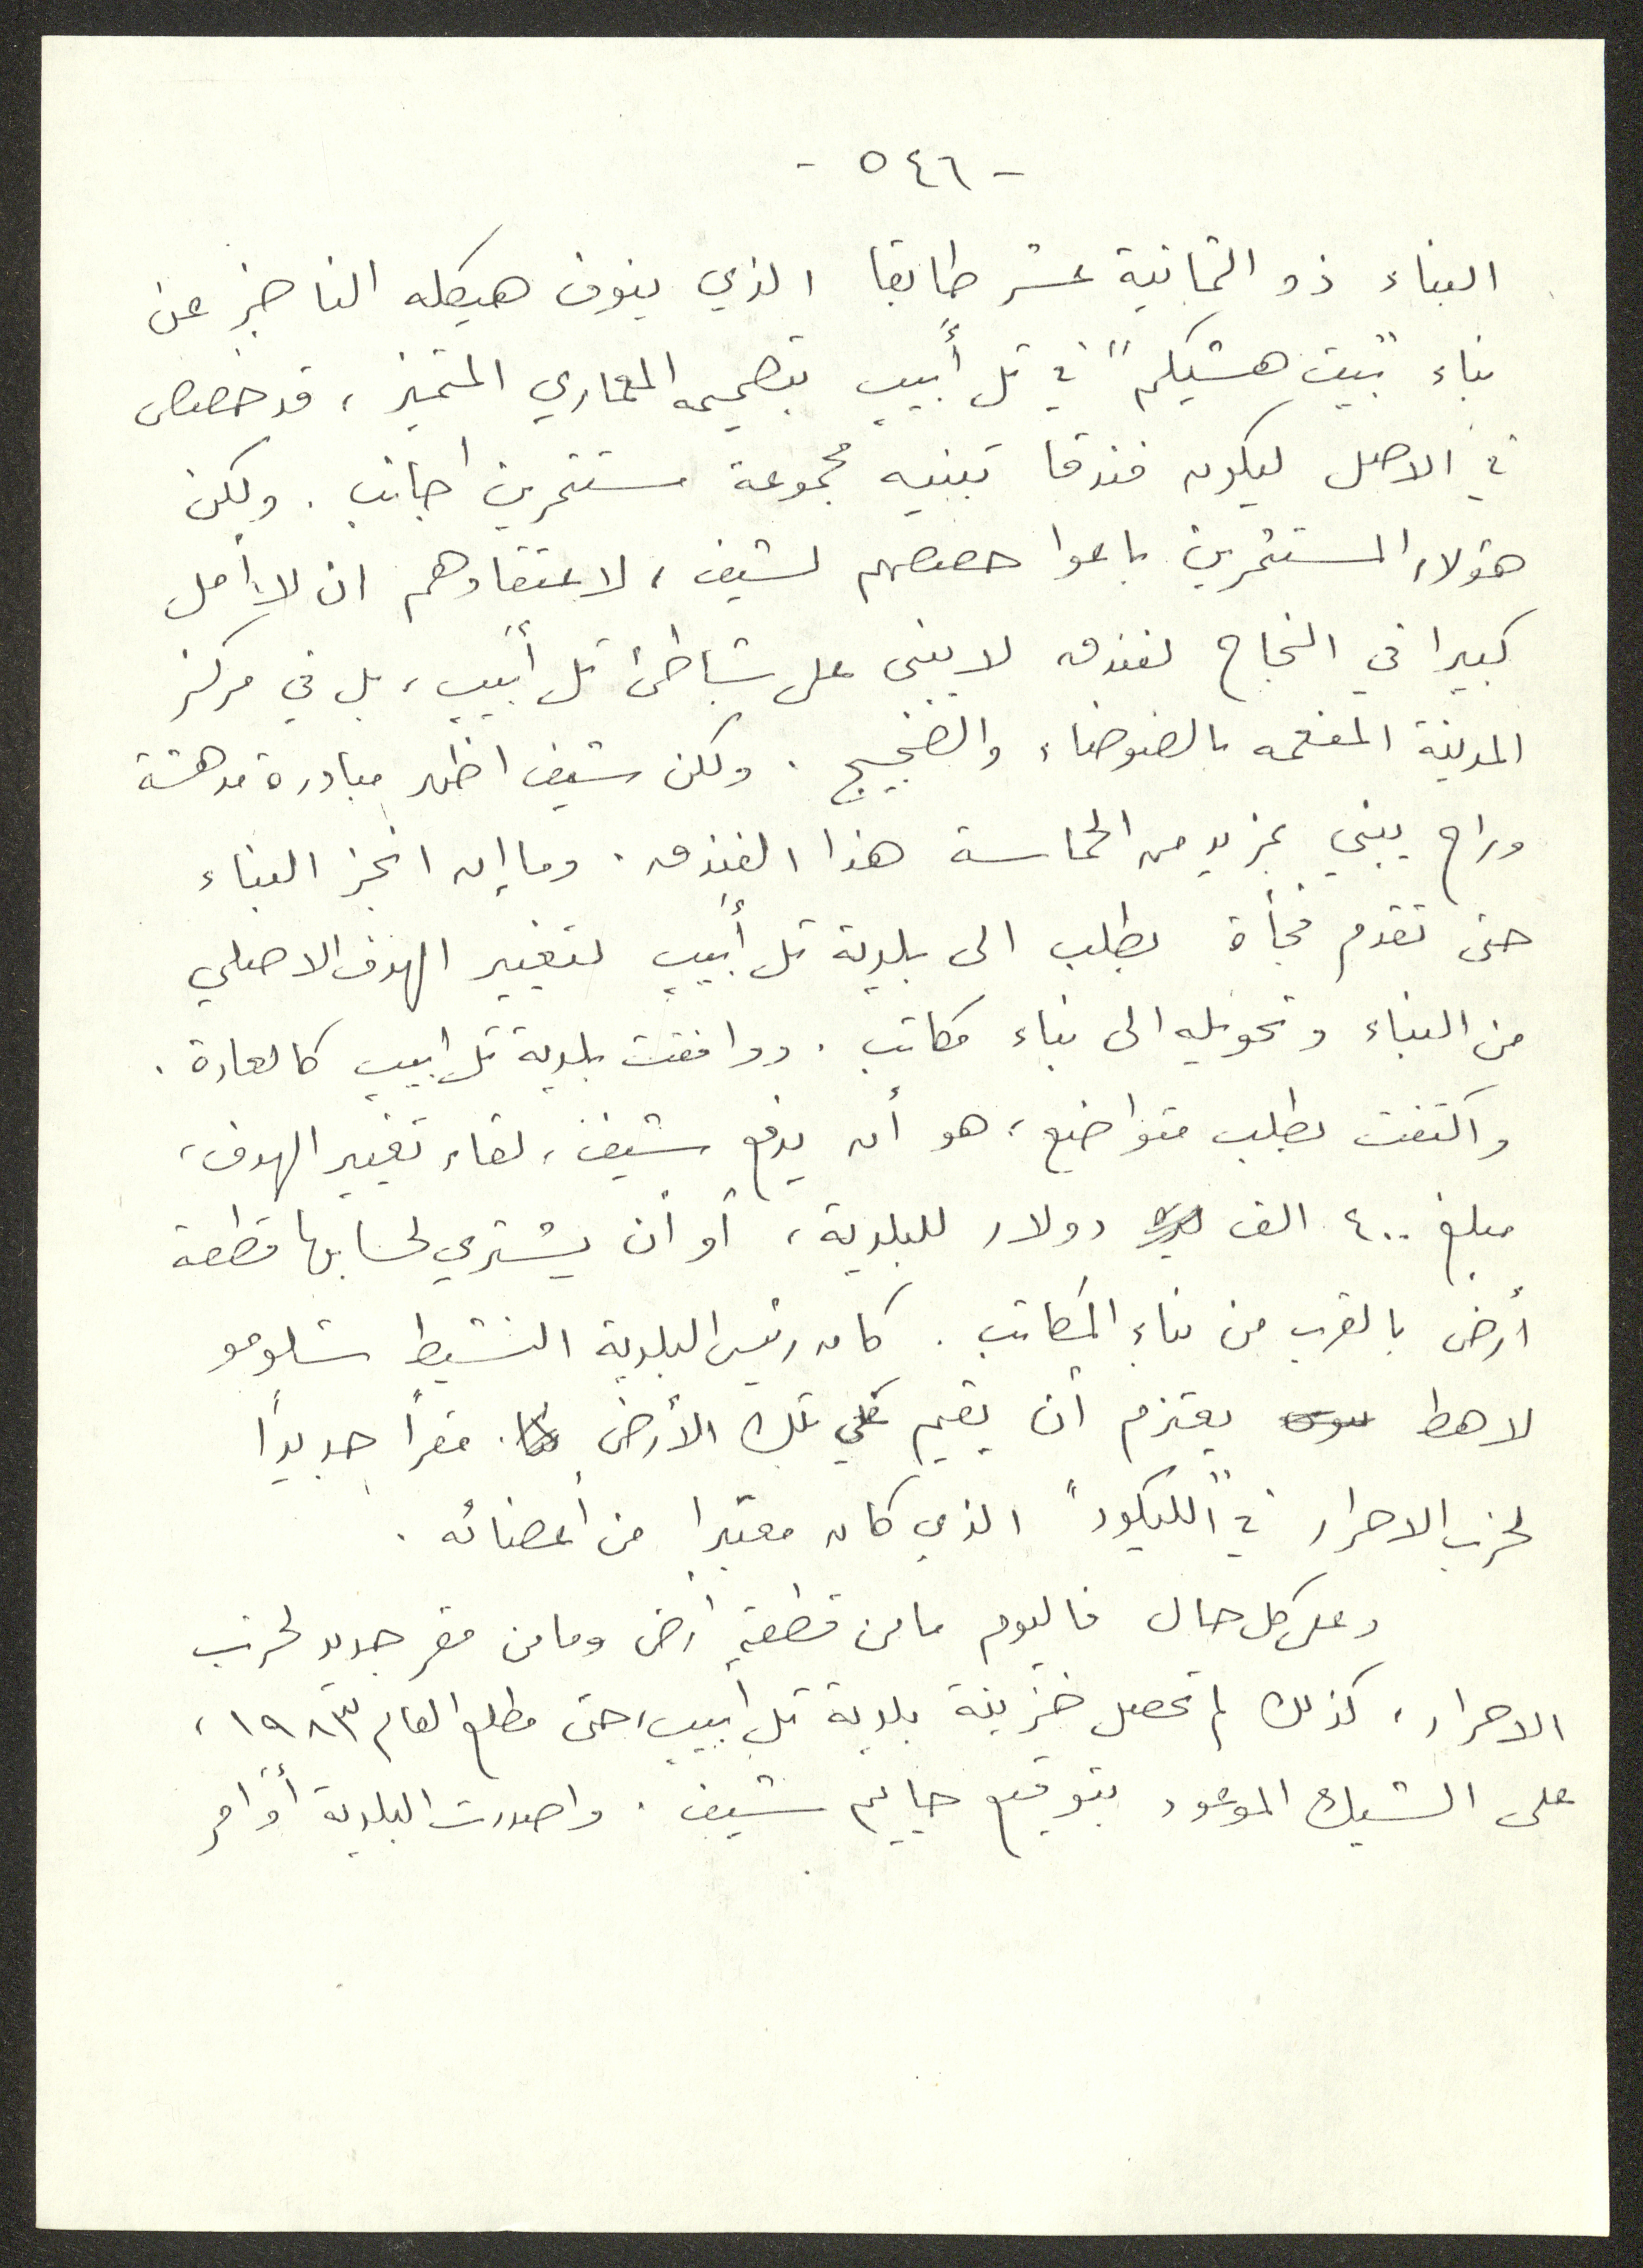 - ٥٤٦ -
البناء ذو الثمانية عشر طابقا الذي ينوف هيكله الناجز عن
بناء "بيت هشيكم" في تل أبيب بتصميمه المعماري المتميز، قد خصص
في الاصل ليكون فندقا تبنيه مجموعة مستثمرين اجانب. ولكن
هؤلاء المستثمرين باعوا حصصهم لشيف، لاعتقادهم ان لا أمل
كبيرا في النجاح لفندق لا يبنى على شاطئ تل أبيب، بل في مركز
المدينة المفعمه بالضوضاء والضجيج. ولكن شيف اظهر مبادرة مدهشة
وراح يبني بمزيد من الحماسة هذا الفندق. وما إن انجز البناء
حتى تقدم فجأة بطلب الى بلدية تل أبيب لتغيير الهدف الاصلي
من البناء وتحويله الى بناء مكاتب. ووافقت بلدية تل ابيب كالعادة.
واكتفت بطلب متواضع، هو أن يدفع شيف، لقاء تغيير الهدف،
مبلغ ٤٠٠ الف دولار للبلدية، أو أن يشتري لحسابها قطعة
أرض بالقرب من بناء المكاتب. كان رئيس البلدية النشيط شلومو
لاهط يعتزم أن يقيم على تلك الأرض مقراً جديداً
لحزب الاحرار في "الليكود" الذي كان معتبرا من أعضائه.
وعلى كل حال فاليوم ما من قطعة أرض وما من مقر جديد لحزب
الاحرار، كذلك لم تحصل خزينة بلدية تل أبيب، حتى مطلع العام ١٩٨٣،
على الشيك الموعود بتوقيع حاييم شيف. واصدرت البلدية أوامر